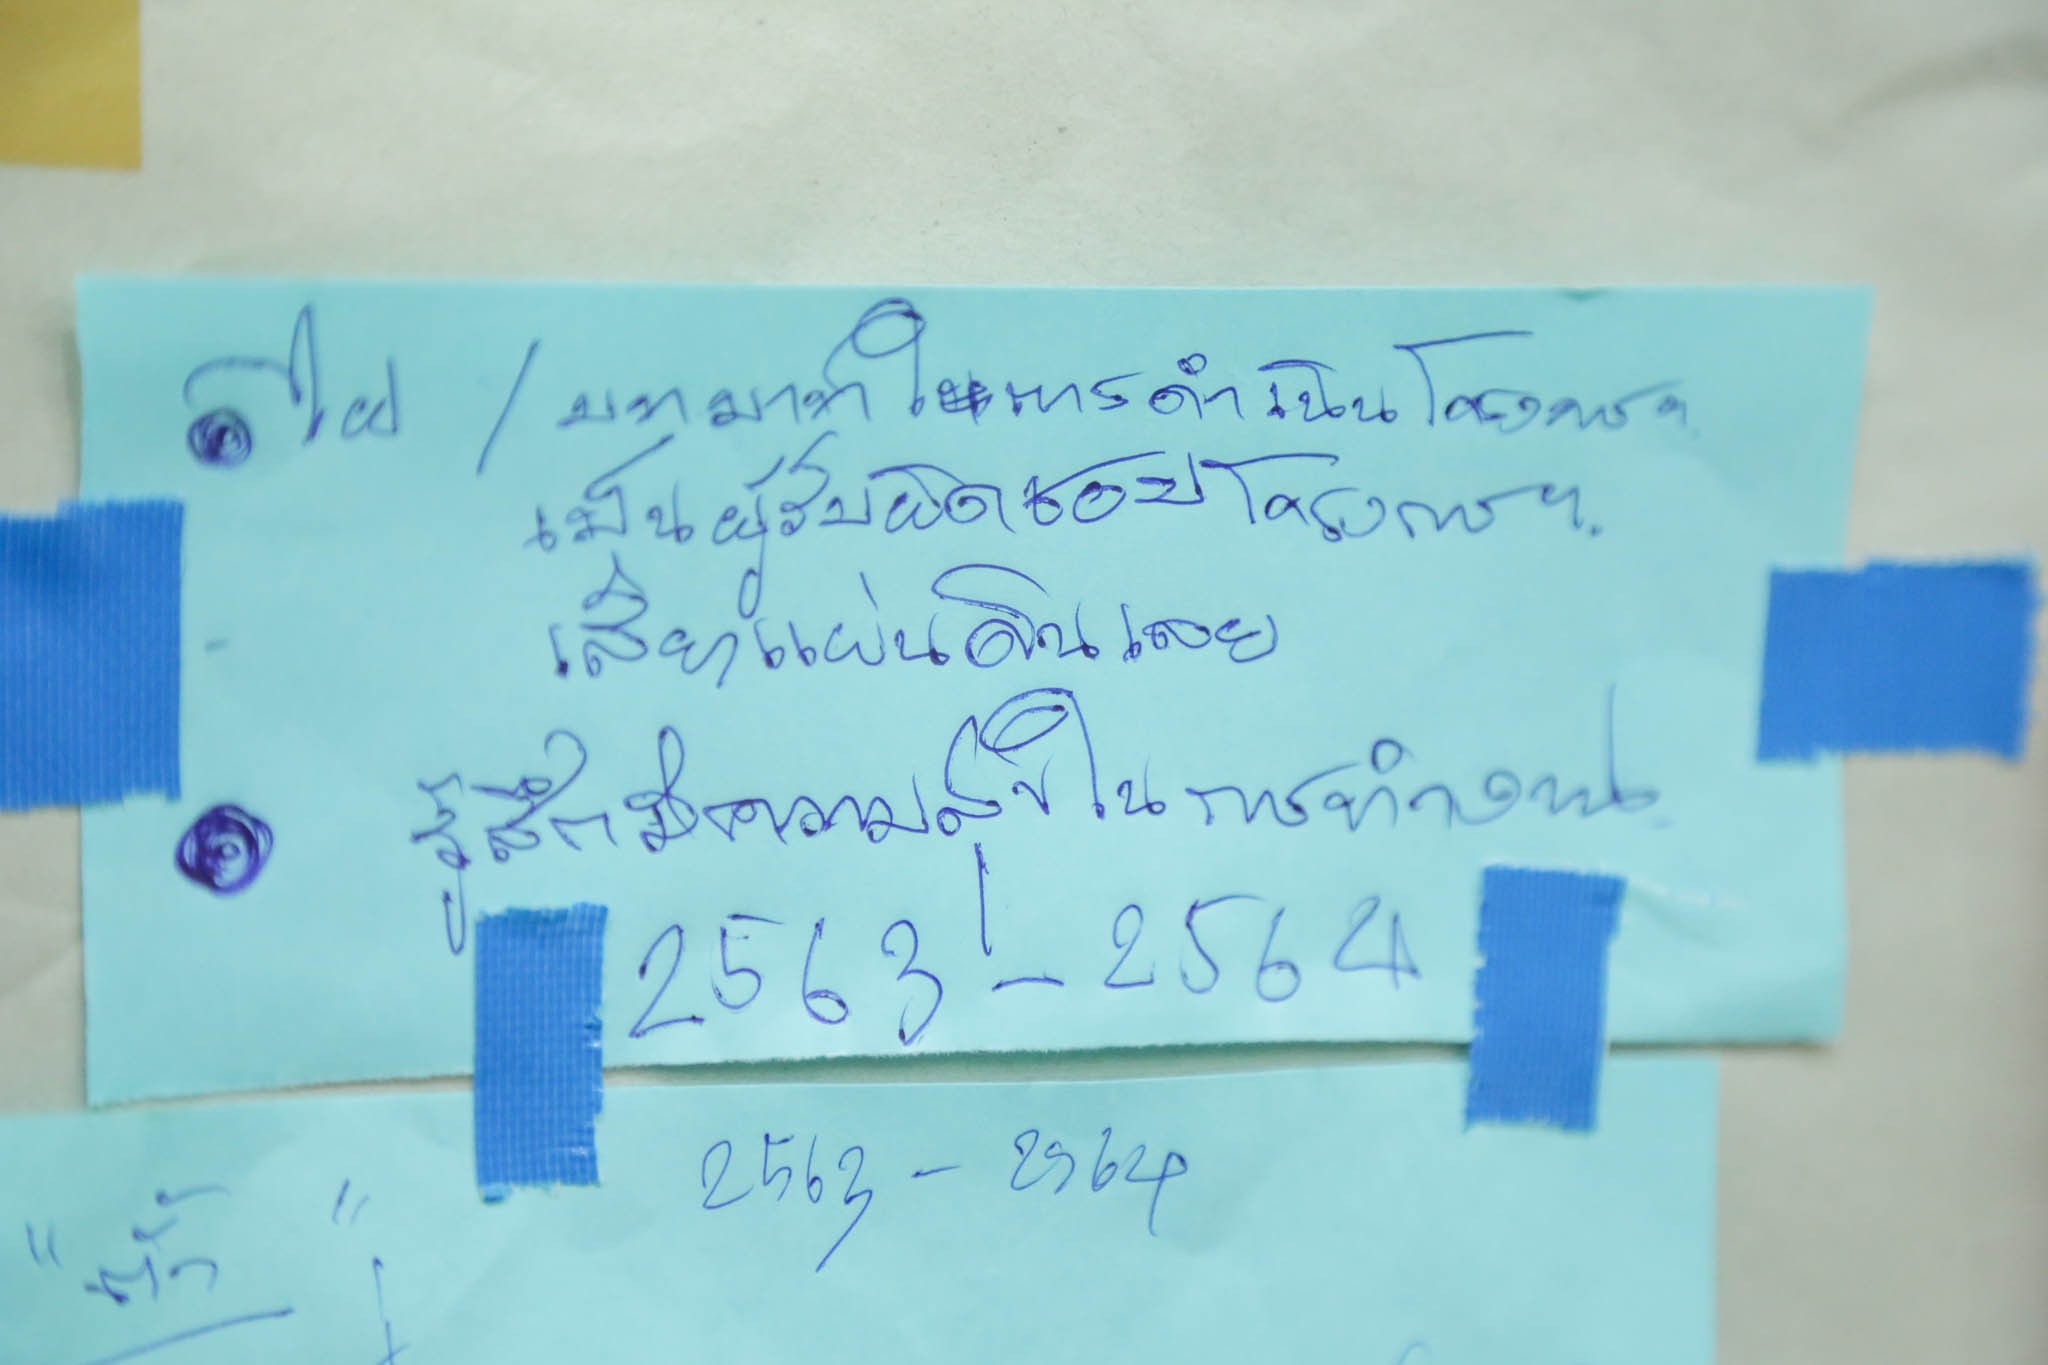 ไผ่ / บทบาทในการดำเนินโครงการฯ
เป็นผู้รับผิดชอบโครงการฯ.
เสี่ยวแผ่นดินเลย
รู้สึกมีความสุขในการทำงาน
2563 - 2564
2563 - 2564